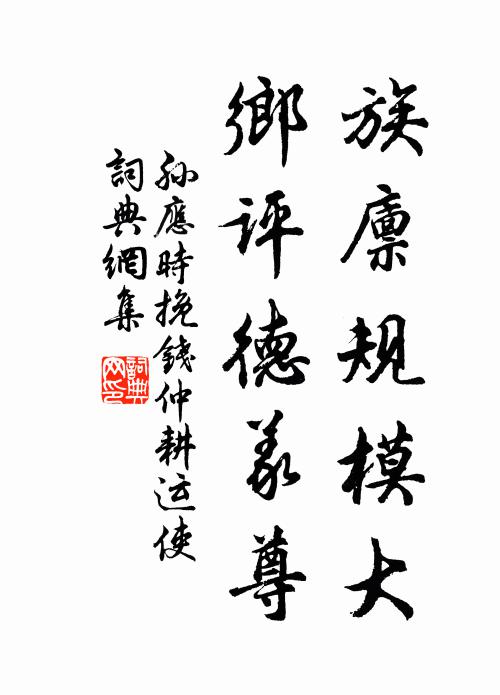 族廪规模大
鄉评德義尊
孙應時挽錢仲耕运使
詞典網集
詞典网印